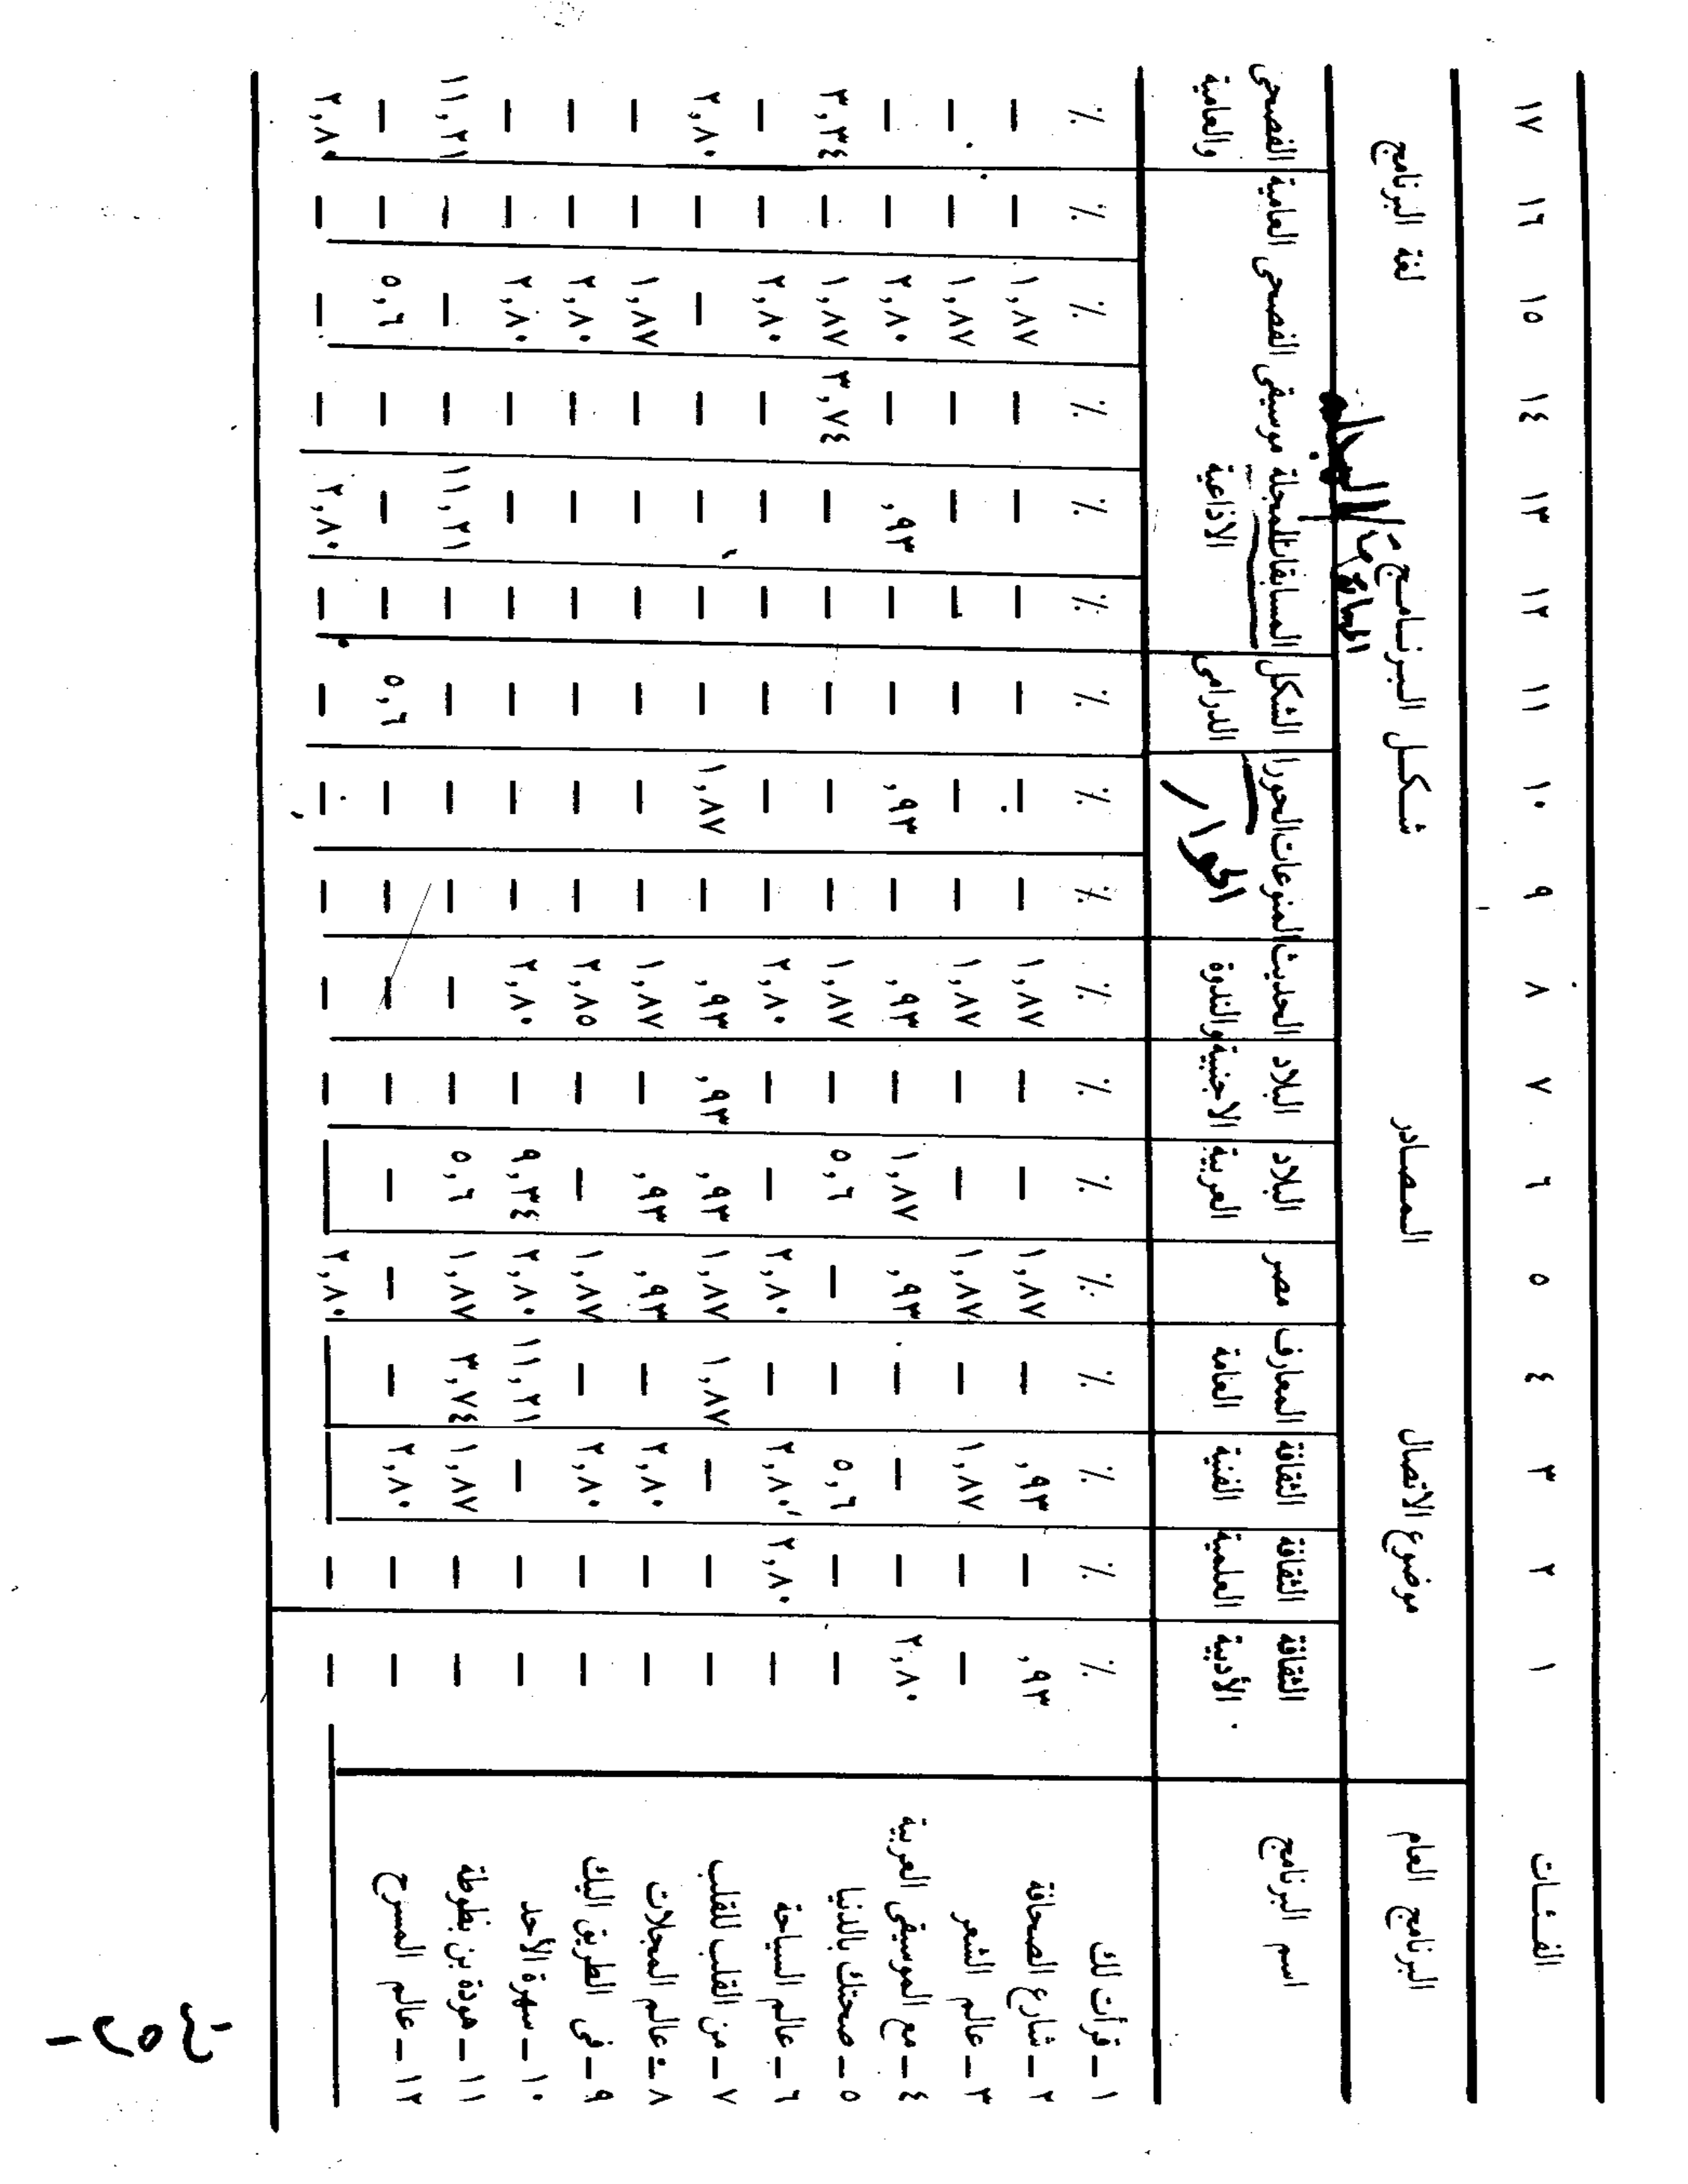 الفئات ١ ٢ ٣ ٤ ٥ ٦ ٧ ٨ ٩ ١٠ ١١ ١٢ ١٣ ١٤ ١٥ ١٦ ١٧
البرنامج العام موضوع الاتصال المصادر شكل البرنامج لغة البرنامج
اسم البرنامج الثقافة الثقافة الثقافة المعارف مصر البلاد البلاد الحديث المنوعات الحورا الشكل المسابقات المجلة موسيقى الفصحى العامية الفصحى
الأدبية العلمية الفنية العامة العربية الاجنبية والندوة الحوار الدرامى الاذاعية والعامية
١ ـ قرأت لك ٪ ٪ ٪ ٪ ٪ ٪ ٪ ٪ ٪ ٪ ٪ ٪ ٪ ٪ ٪ ٪ ٪
٢ ـ شارع الصحافة ,٩٣ — ,٩٣ — ١,٨٧ — — ١,٨٧ — — — — — — ١,٨٧ — —
٣ ـ عالم الشعر — — ١,٨٧ — ١,٨٧ — — ١,٨٧ — — — — — — ١,٨٧ — —
٤ ـ مع الموسيقى العربية ٢,٨٠ — — — ,٩٣ ١,٨٧ — ,٩٣ — ,٩٣ — — ,٩٣ — ٢,٨٠ — —
٥ ـ صحتك بالدنيا — — ٥,٦ — — ٥,٦ — ١,٨٧ — — — — — ٣,٧٤ ١,٨٧ — ٣,٣٤
٦ ـ عالم السياحة — ٢,٨٠ ٢,٨٠ — ٢,٨٠ — — ٢,٨٠ — — — — — — ٢,٨٠ — —
٧ ـ من القلب للقلب — — — ١,٨٧ ١,٨٧ ,٩٣ ,٩٣ ,٩٣ — ١,٨٧ — — — — — — ٢,٨٠
٨ ـ عالم المجلات — — ٢,٨٠ — ,٩٣ ,٩٣ — ١,٨٧ — — — — — — ١,٨٧ — —
٩ ـ فى الطريق اليك — — ٢,٨٠ — ١,٨٧ — — ٢,٨٥ — — — — — — ٢,٨٠ — —
١٠ ـ سهرة الأحد — — — ١١,٢١ ٢,٨٠ ٩,٣٤ — ٢,٨٠ — — — — — — ٢,٨٠ — —
١١ ـ مودة بن بطوطة — — ١,٨٧ ٣,٧٤ ١,٨٧ ٥,٦ — — — — — — ١١,٢١ — — — ١١,٢١
١٢ ـ عالم المسرح — — ٢,٨٠ — — — — — — — ٥,٦ — — — ٥,٦ — —
— — — — ٢,٨٠ — — — — — — — ٢,٨٠ — — — ٢,٨٠